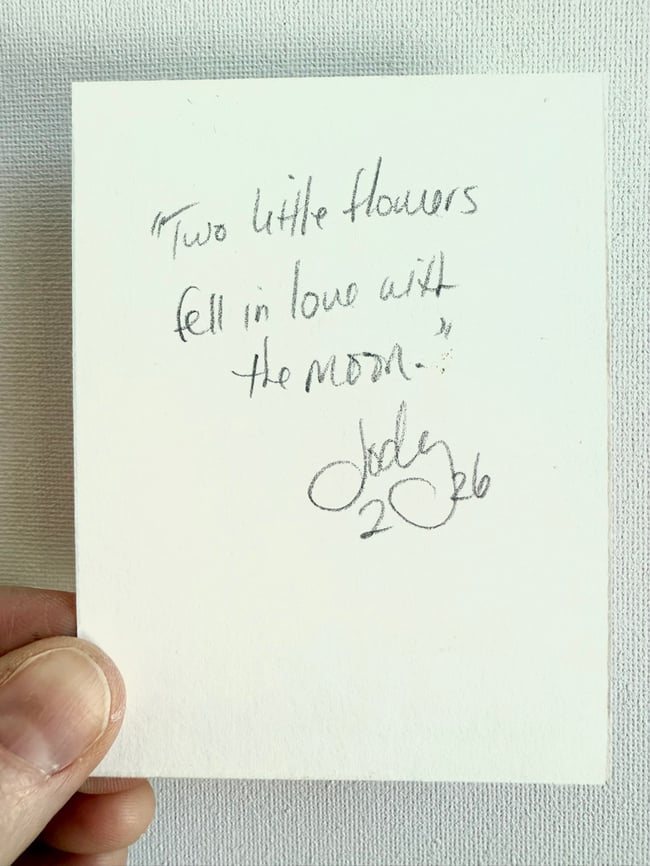 "Two little flowers
fell in love with
the moon."
Jody
2026